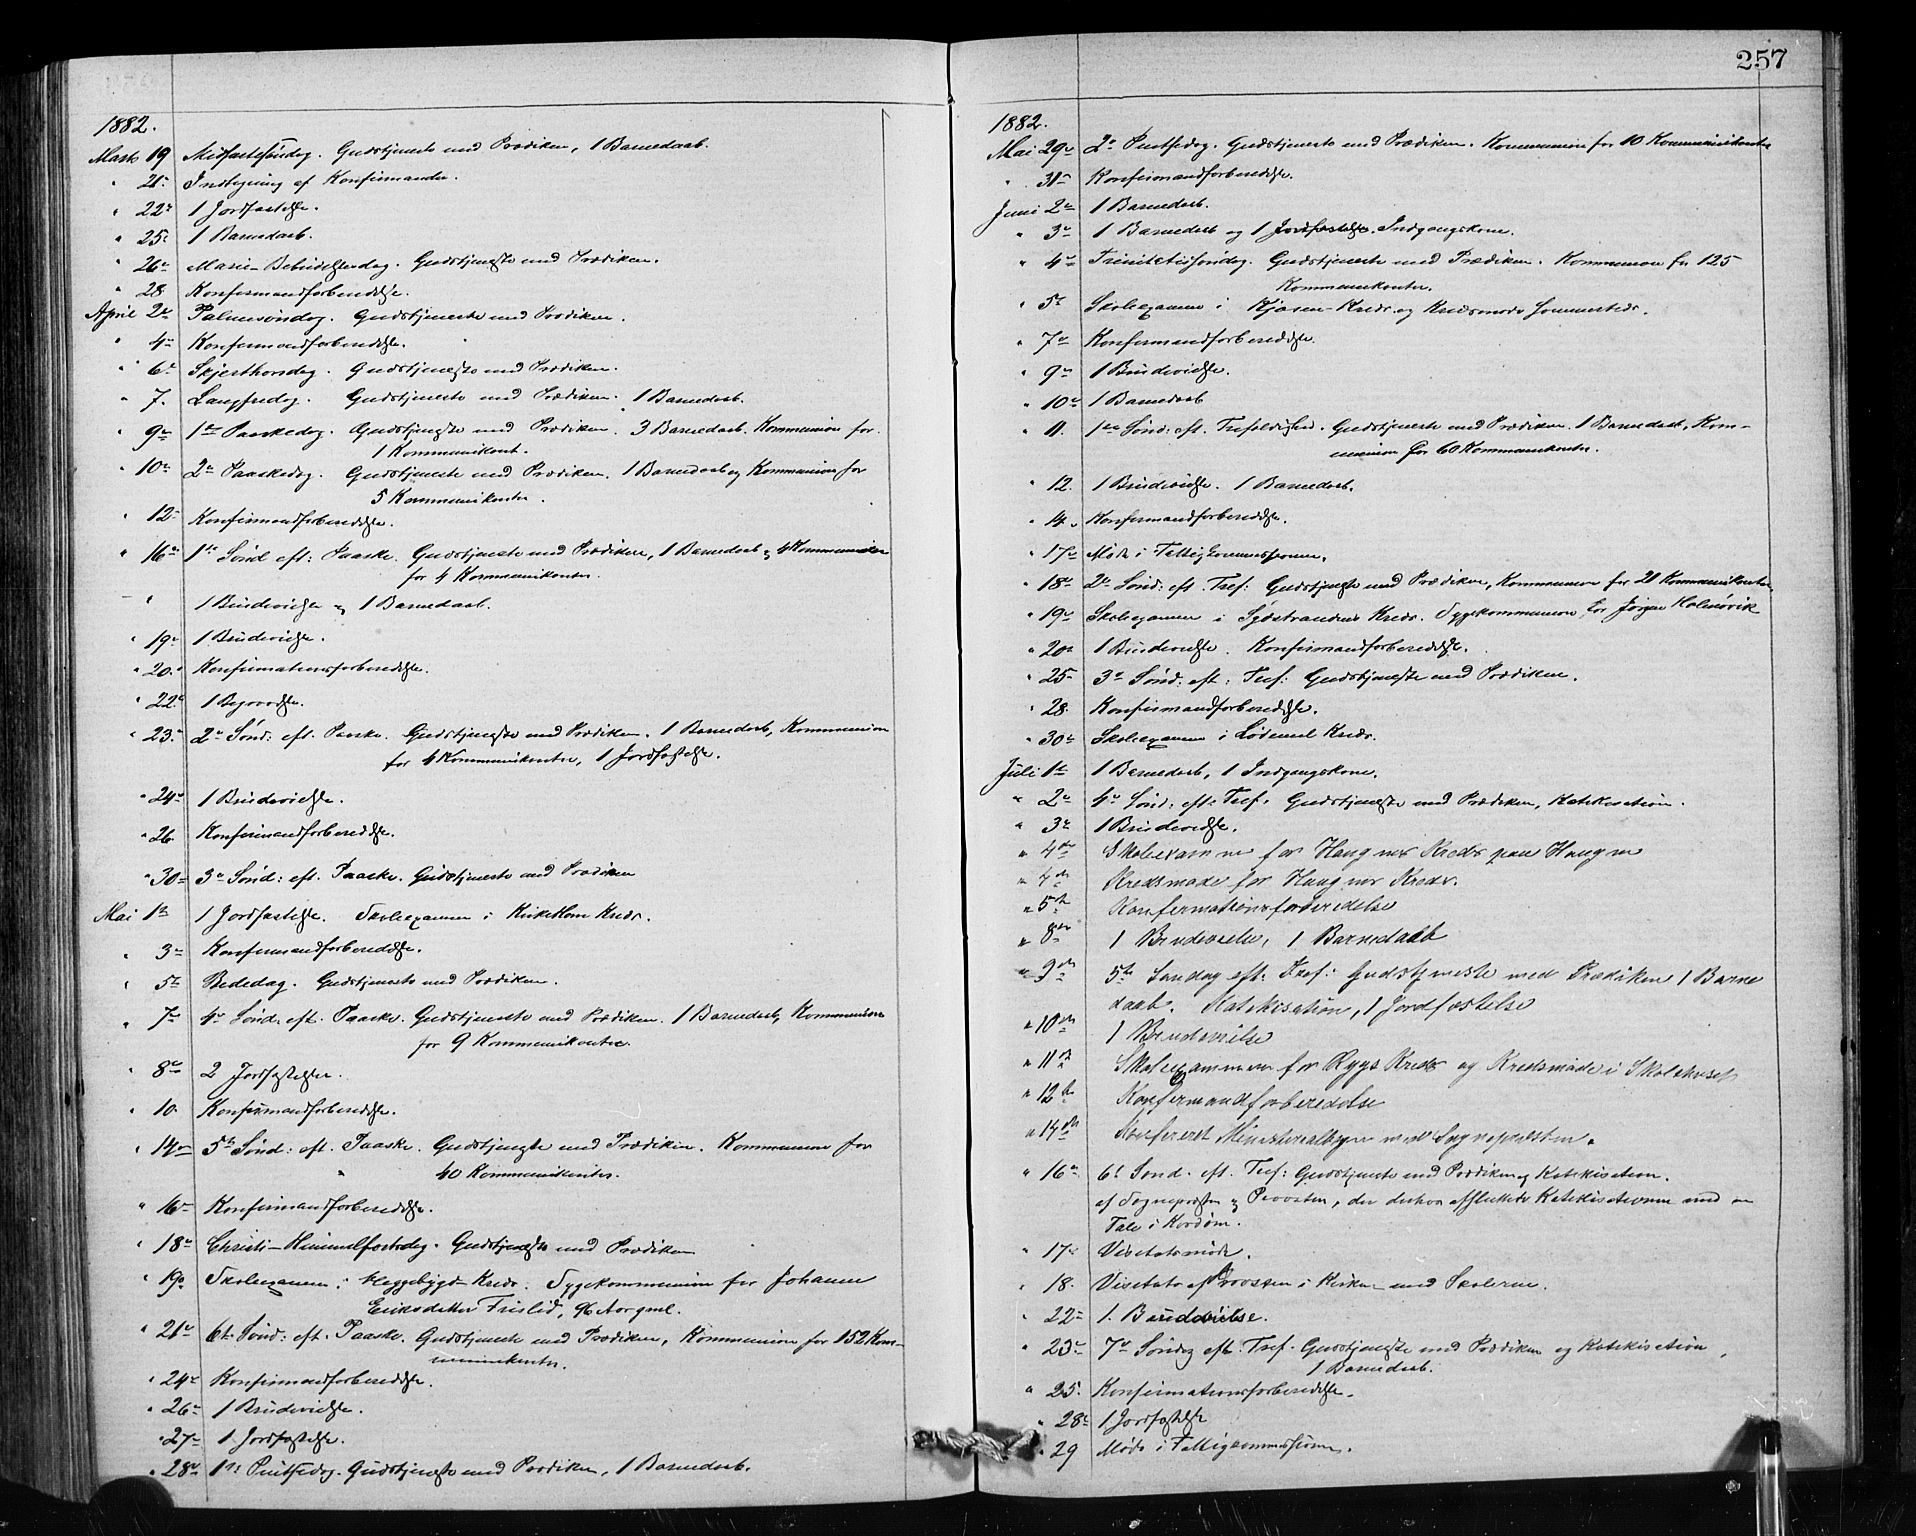 257
1882.
Marts 19 Midfastesöndag. Gudstjeneste med Prædiken, 1 Barnedaab.
" 21. Indtegning af Konfirmander.
" 22. 1 Jordfæstelse.
" 25. 1 Barnedaab.
" 26. Mariæ-Bebudelsesdag. Gudstjeneste med Prædiken.
" 28 Konfirmandforberedelse.
April 2. Palmesöndag. Gudstjeneste med Prædiken.
" 4. Konfirmandforberedelse.
" 6. Skjærthorsdag. Gudstjeneste med Prædiken.
" 7. Langfredag. Gudstjeneste med Prædiken. 1 Barnedaab.
" 9. 1ste Paaskedag. Gudstjeneste med Prædiken. 3 Barnedaab. Kommunion for
1 Kommunikant.
" 10. 2. Paaskedag. Gudstjeneste med Prædiken. 1 Barnedaab og Kommunion for
5 Kommunikanter.
" 12. Konfirmandforberedelse.
" 16. 1ste Sönd eft: Paaske. Gudstjeneste med Prædiken, 1 Barnedaab og Kommunion
for 4 Kommunikanter.
" 1 Brudevielse og 1 Barnedaab.
" 19. 1 Brudevielse.
" 20. Konfirmationsforberedelse.
" 22. 1
" 23. 2. Sönd: eft. Paaske. Gudstjeneste med Prædiken. 1 Barnedaab, Kommunion
for 4 Kommunikanter, 1 Jordfæstelse.
" 24. 1 Brudevielse.
" 26. Konfirmandforberedelse.
" 30. 3. Sönd: eft. Paaske. Gudstjeneste med Prædiken
Mai 1. 1 Jordfæstelse. Skoleexamen i Kreds.
" 3. Konfirmandforberedelse.
" 5. Bededag. Gudstjeneste med Prædiken.
" 7. 4. Sönd: eft. Paaske. Gudstjeneste med Prædiken. 1 Barnedaab, Kommunion
for 9 Kommunikanter.
" 8. 2 Jordfæstelser.
" 10. Konfirmandforberedelse.
" 14. 5te Sönd: eft. Paaske. Gudstjeneste med Prædiken. Kommunion for
40 Kommunikanter.
" 16. Konfirmandforberedelse.
" 18. Christi-Himmelfartsdag. Gudstjeneste med Prædiken
" 19. Skoleexamen i Heggebygd Kreds. Sygekommunion for Johanne
Eriksdatter Frislid, 96 Aar gml.
" 21. 6te Sönd: eft. Paaske. Gudstjeneste med Prædiken, Kommunion for 152 Kom-
munikanter.
" 24. Konfirmandforberedelse.
" 26. 1 Brudevielse.
" 27. 1 Jordfæstelse.
" 28. 1ste Pintsedag. Gudstjeneste med Prædiken, 1 Barnedaab.
1882.
Mai 29. 2. Pintsedag. Gudstjeneste med Prædiken. Kommunion for 10 Kommunikanter
" 31. Konfirmandforberedelse.
Juni 2. 1 Barnedaab.
" 3. 1 Barnedaab og 1 Jordfæstelse. Indgangskone.
" 4. Trinitatissöndag. Gudstjeneste med Prædiken. Kommunion for 125
Kommunikanter.
" 5. Skoleexamen i Kjösen-Kreds og Kredsmöde sammesteds.
" 7. Konfirmandforberedelse.
" 9. 1 Brudevielse.
" 10. 1 Barnedaab
" 11. 1ste Sönd: eft. Trefoldighed. Gudstjeneste med Prædiken. 1 Barnedaab, Kom-
munion for 60 Kommunikanter.
" 12. 1 Brudevielse. 1 Barnedaab.
" 14. Konfirmandforberedelse.
" 17. Möde i Fattigkommissionen.
" 18. 2. Sönd: eft. Tref: Gudstjeneste med Prædiken, Kommunion for 21 Kommunikanter
" 19. Skoleexamen i Sydstrandens Kreds. Sygekommunion for Jörgen Holmövik
" 20. 1 Brudevielse. Konfirmandforberedelse.
" 25. 3. Sönd: eft: Tref: Gudstjeneste med Prædiken.
" 28. Konfirmandforberedelse.
" 30. Skoleexamen i Lödemel Kreds.
Juli 1. 1 Barnedaab, 1 Indgangskone.
" 2. 4. Sönd: eft: Tref. Gudstjeneste med Prædiken, Katekisation.
" 3. 1 Brudevielse.
" 4de Skoleexamen for Haugnes Kreds paa Haugen
" 4de Kredsmøde for Haugnes Kreds.
" 5te Konfirmationsforberedelse
" 8de 1 Brudevielse, 1 Barnedaab
" 9de 5te Søndag eft: Tref: Gudstjeneste med Prædiken 1 Barne
daab. Katekisation, 1 Jordfæstelse
" 10de 1 Brudevielse
" 11te Skoleexammen for Rygs Kreds og Kredsmøde i Skolehuset
" 12te Konfirmandforberedelse
" 14de Konfereret Ministerialbogen med Sognepræsten.
" 16. 6te Sönd. eft. Tref: Gudstjeneste med Prædiken og Katekisation.
af Sognepræsten og Provsten, der derhos afsluttede Katekisationen med en
Tale i Kordören.
" 17. Visitatsmöde.
" 18. Visitats af Provsten i Kirken med Skolerne.
" 22. 1. Brudevielse.
" 23. 7. Söndag eft. Tref. Gudstjeneste med Prædiken og Katekisation,
1 Barnedaab.
" 25. Konfirmationsforberedelse.
" 28. 1 Jordfæstelse
" 29 Möde i Fattigkommissionen.